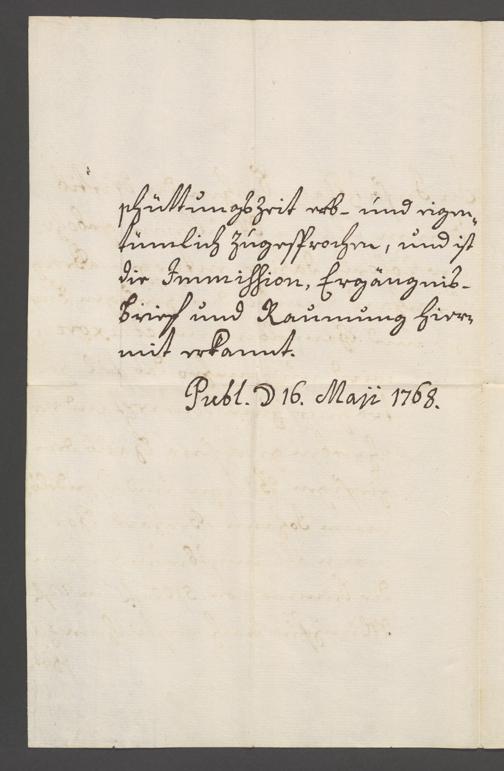 schüttungszeit erb- und eigen-
tümlich zugesprochen, und ist
die Immission, Ergängnis-
brief und Raumung hier-
mit erkannt.
Publ. D 16. Maji 1768.